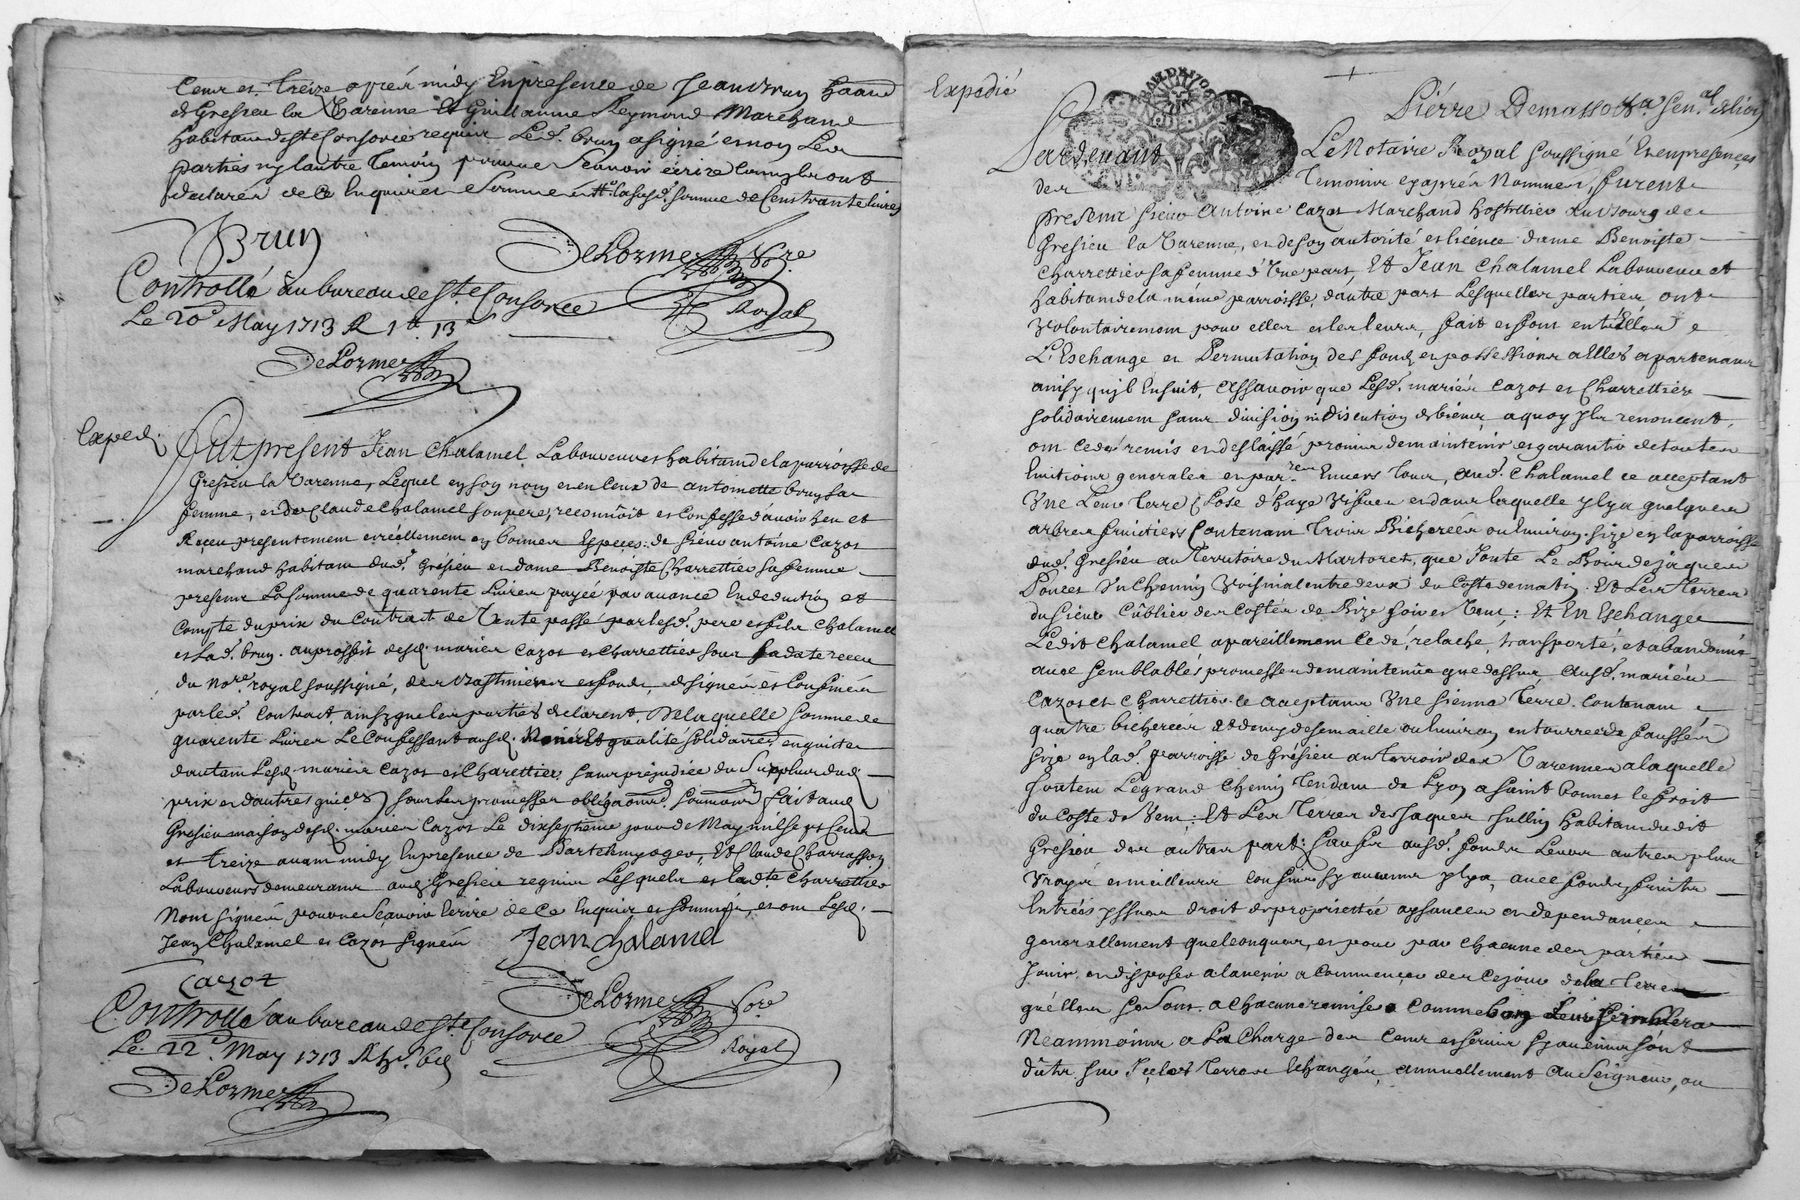 Cens et treize apres midy En presence de Jean Brun
de Gresieu la Varenne et Guillaume Reymond Marchand
habitand de Ste Consorce requis Led. brun a signé et non Les
parties ny lautre temoin pour ne scavoir écrire
declarer de ce Enquis et Somme somme de Cens trante livres
Brun
DeLorme Nore
Royal
Controllé au bureau de Ste Consorce
Le 20e May 1713
DeLorme
Exped.
Fut present Jean Chalamel Laboureur et habitand de la parroisse de
Gresieu la Varenne, Lequel en son nom et en Ceux de antoinette brun sa
femme, et de Claude Chalamel son pere, reconnoit et Confesse d'avoir heu et
Receu presentement et réellement en bonnes Especes: de sieur antoine Cazot
marchand habitam dud. Grésieu et dame Benoiste Charrettier sa femme
presens La somme de quarente Livres payée par avance En deduction et
Compte du prix du Contract de Vente passé par lesd. pere et fils Chalamel
et lad. brun au proffit desd. mariés Cazot et Charrettier sous sa date receu
du Nore royal soussigné, des et fonds, designés et Confinés
par led. Contract, ainsy que les parties declarent, De laquelle somme de
quarente Livres Le Confessant ausd. qualité solidaires en quitte
dautam Lesd. mariés Cazot et Charettier sans préjudice du Surplus dud.
prix et dautres sous les promesses obligaons soumaons fait aud.
Gresieu maison desd. mariés Cazot Le dixseptieme jour de May mil sept Cens
et treize avant midy En presence de Bartelemy oger, Et Claude Charrasson
Laboureurs demeurans aud. Gresieu requis Lesquels et lad.te Charrettier
Nont signés pour ne scavoir Ecrire de Ce Enquis et sommés, et ont Lesd.
Jean Chalamel et Cazot signés
Jean Chalamel
Cazot
DeLorme Nore
Royal
Controllé au bureau de Ste Consorce
Le 22e May 1713
DeLorme
Expedié
Pierre
Pardevant Le Notaire Royal soussigné Et en presences
des Temoins et apres Nommés, furent
presens sieur Antoine Cazot Marchand hostellier du Bourg de
Gresieu la Varenne, et de son autorité et licence dame Benoiste
Charrettier sa femme d'Une part, Et Jean Chalamel Laboureur et
habitam de la même parroisse, d'autre part Lesquelles parties ont
Volontairement pour elles et les leurs, fait et font entr'Elles
L'Eschange et Permutation des fonds et possessions a Elles apartenans
ainsy qu'il Ensuit, Assavoir que Lesd. mariés Cazot et Charrettier
solidairement sans division ni discution de biens, a quoy ils renoncent,
ont cedé remis et deslaissé promis de maintenir et garantir de toutes
Evictions generales et par.res Envers tous, aud. Chalamel ce acceptant
Une Leur Terre Close d'haye et dans laquelle il y a quelques
arbres fruitiers Contenant Trois Bicherées ou Environ size en la parroisse
dud. Gresieu au Territoire du Martoret, que Joute Le Bois de jaques
Poncet Un Chemin Voisinal entre deux du Costé de matin. Et Les Terres
du sieur des Costés de Bize soir et Vent; Et En Eschange
Ledit Chalamel a pareillement Cedé, relaché, transporté, et abandonné
avec semblables promesses de maintenue que dessus, Ausd. mariés
Cazot et Charrettier ce acceptans Une sienne Terre Contenant
quatre bicherées et demy de semaille ou Environ, entourrée de faussés
size en lad. parroisse de Grésieu au Terroir des Varennes a laquelle
Joutent Le grand Chemin Tendant de Lyon a saint bonnet le froit
du Costé de Vent; Et Les Terres de Jaques Jullien habitam dudit
Gresieu des autres parts: sauf ausd. fonds Leurs autres plus
Vrayes et meilleurs Confins sy aucuns y a, avec fonds, fruits
Entrées yssues droit de proprietté aysances et dependances
generallement quelconques, et pour par chacune des parties
Jouir et disposer a lavenir a Commencer des ce jour de la Terre
qu'elles se sont a chacune remise Comme bon leur semblera
Neanmoins a La Charge des Cens et servis sy aucuns sont
dûts sur Icelles Terres Echangées, annuellement Au Seigneur, ou